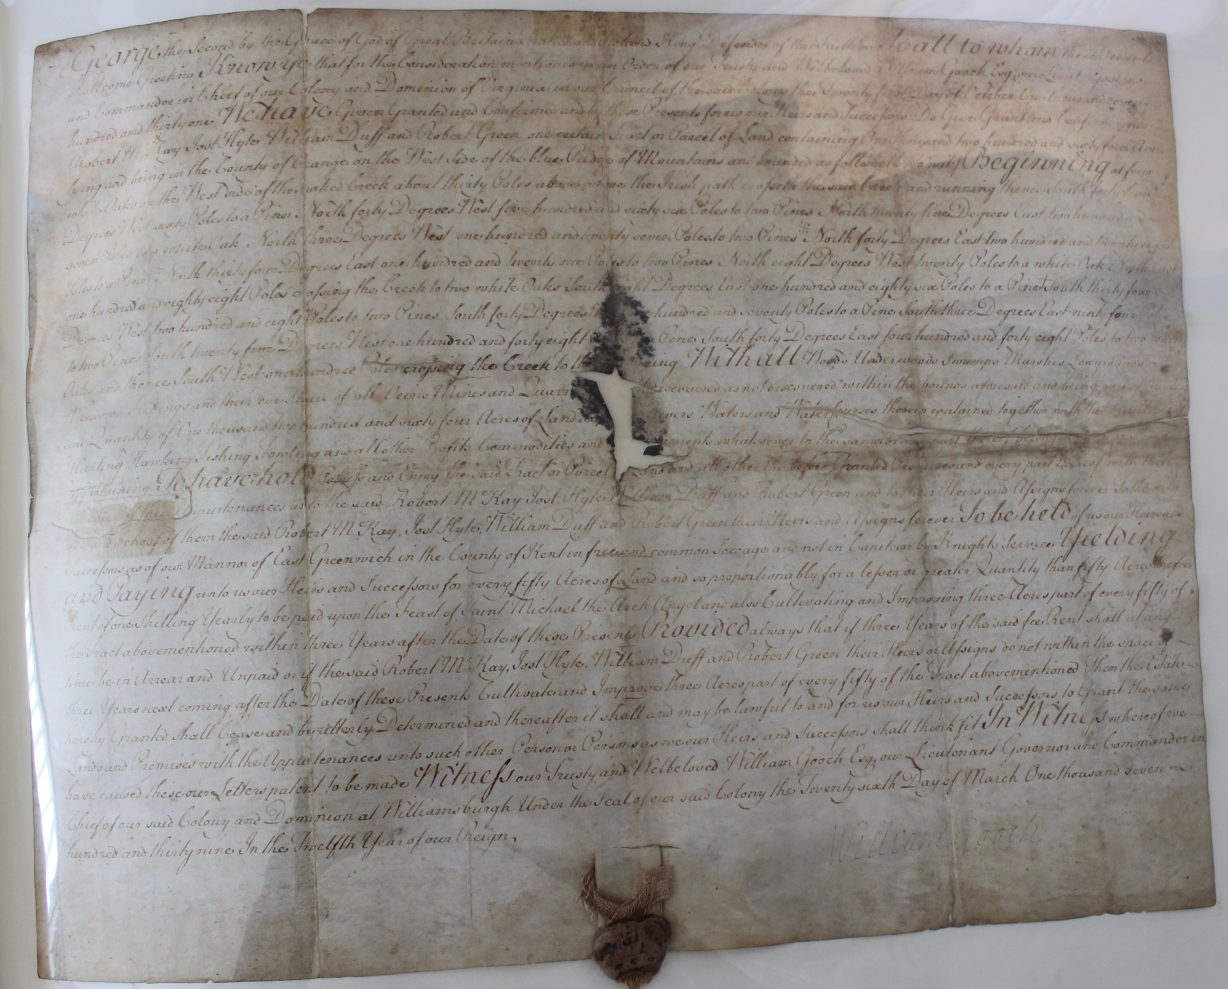 George the Second by the Grace of God of Great Britain France and Ireland King Defender of the Faith &c To all to whom these Presents
shall come Greeting Know ye that for the Consideration mentioned in an Order of our Trusty and Welbeloved William Gooch Esq our Lieut Governor
and Commander in Chief of our Colony and Dominion of Virginia in our Council of the said Colony the Twenty first Day of October One thousand seven
hundred and thirty one We have Given Granted and Confirmed and by these Presents for us our Heirs and Successors Do Give Grant and Confirm unto
Robert McKay Jost Hyte William Duff and Robert Green one certain Tract or Parcel of Land containing One thousand two hundred and sixty four Acres
lying and being in the County of Orange on the West Side of the blue Ridge of Mountains and bounded as followeth to wit Beginning at four
white Oaks on the West side of the naked Creek about thirty Poles above where the Irish path crosseth the said Creek and running thence South forty four
Degrees West sixty Poles to a Pine North forty Degrees West five hundred and sixty six Poles to two Pines North twenty five Degrees East two hundred
seven Poles to a white Oak North three Degrees West one hundred and twenty seven Poles to two Pines North forty Degrees East two hundred and twenty eight
Poles to a Pine North thirty four Degrees East one hundred and twenty Poles to two Pines North eight Degrees West twenty Poles to a white Oak North
one hundred and eighty eight Poles crossing the Creek to two white Oaks South Degrees East one hundred and eighty six Poles to a Pine South thirty four
Degrees West two hundred and eight Poles to two Pines South forty Degrees hundred and seventy Poles to a Pine South three Degrees East ninety four
to two Pines South twenty five Degrees West one hundred and forty eight Pine South forty Degrees East four hundred and forty eight Poles to two white
Oaks and thence South West one hundred Poles crossing the Creek to the ing With all Woods Underwoods Swamps Marshes Lowgrounds
Meadows Feedings and their due share of all Veins Mines and Quarr discovered as not discovered within the bounds aforesaid and being part of the
said Quantity of One thousand two hundred and sixty four Acres of Land Rivers Waters and Water Courses therein contained together with the
Hunting Hawking Fishing Fowling and all other Profits Commodities and ments whatsoever to the same or any part thereof belonging
To have hold Possess and Enjoy the said Tract or Parcel Land and all other the before Granted Premises and every part thereof with their
Appurtenances unto the said Robert McKay Jost Hyte William Duff and Robert Green and to their Heirs and Assigns forever To the only
use and behoof of them the said Robert McKay, Jost Hyte, William Duff and Robert Green their Heirs and Assigns forever To be held of us our Heirs and
Successors as of our Mannor of East Greenwich in the County of Kent in free and common Soccage and not in Capite or by Knights Service Yielding
and Paying unto us our Heirs and Successors for every fifty Acres of Land and so proportionably for a lesser or greater Quantity than fifty Acres the fee
rent of one Shilling Yearly to be paid upon the Feast of Saint Michael the Arch Angel and also Cultivating and Improving three Acres part of every fifty of
the Tract abovementioned within three Years after the Date of these Presents Provided always that if three Years of the said fee Rent shall at any
time be in Arrear and Unpaid or if the said Robert McKay, Jost Hyte, William Duff and Robert Green their Heirs or Assigns do not within the space of
three Years next coming after the Date of these Presents Cultivate and Improve three Acres part of every fifty of the Tract abovementioned Then the Estate
hereby Granted shall Cease and be utterly Determined and thereafter it shall and may be lawful to and for us our Heirs and Successors to Grant the same
Lands and Premises with the Appurtenances unto such other Person or Persons as we our Heirs and Successors shall think fit In Witness whereof we
have caused these our Letters patent to be made Witness our Trusty and Welbeloved William Gooch Esq; our Lieutenant Governor and Commander in
Chief of our said Colony and Dominion at Williamsburgh Under the Seal of our said Colony the Twenty sixth Day of March One thousand seven
hundred and thirty nine In the Twelfth Year of our Reign
William Gooch